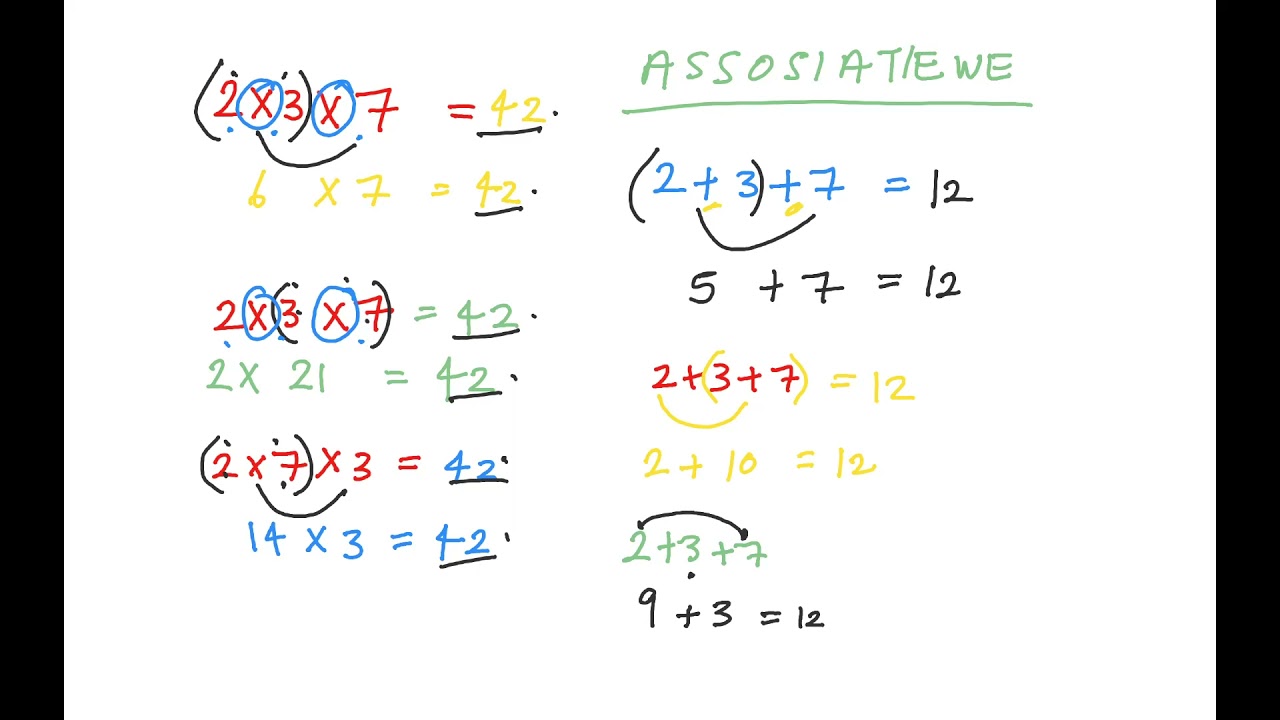 (2 × 3) × 7 = 42
6 × 7 = 42
2 × (3 × 7) = 42
2 × 21 = 42
(2 × 7) × 3 = 42
14 × 3 = 42
ASSOSIATIEWE
(2 + 3) + 7 = 12
5 + 7 = 12
2 + (3 + 7) = 12
2 + 10 = 12
2 + 3 + 7
9 + 3 = 12